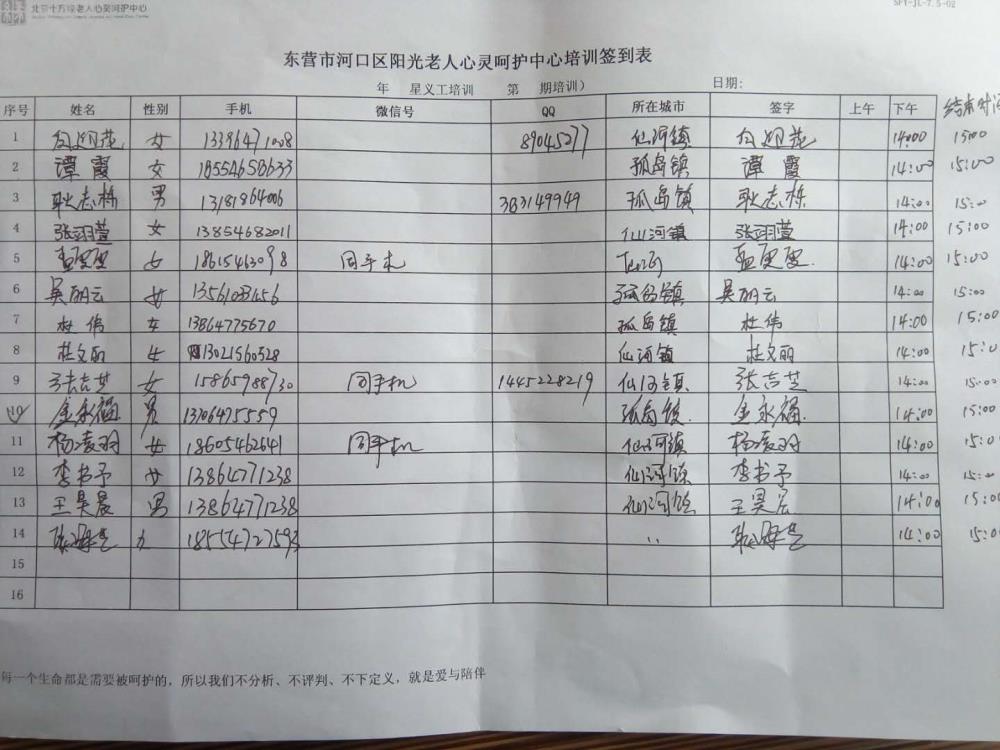 北京十方缘老人心灵呵护中心
SFY-JL-7.5-02
东营市河口区阳光老人心灵呵护中心培训签到表
年 星义工培训 第 期培训） 日期:
序号 姓名 性别 手机 微信号 QQ 所在城市 签字 上午 下午 结束时间
1 女 13396471008 89045277 仙河镇 14:00 15:00
2 谭霞 女 18554658633 孤岛镇 谭霞 14:00 15:00
3 耿志栋 男 13181864006 383149949 孤岛镇 耿志栋 14:00 15:00
4 张翊萱 女 13854682011 仙河镇 张翊萱 14:00 15:00
5 孟更更 女 18615463098 同手机 仙河 孟更更 14:00 15:00
6 吴丽云 女 13561033456 孤岛镇 吴丽云 14:00 15:00
7 杜伟 女 13864775670 孤岛镇 杜伟 14:00 15:00
8 杜文丽 女 13021560528 仙河镇 杜文丽 14:00 15:0
9 张吉芝 女 15865988730 同手机 1445228219 仙河镇 张吉芝 14:00 15:00
10 金永福 男 13706475559 孤岛镇 金永福 14:00 15:00
11 杨凌羽 女 18605462641 同手机 仙河镇 杨凌羽 14:00 15:0
12 李书予 女 13864771238 仙河镇 李书予 14:00 15:00
13 王昊晨 男 13864771238 仙河镇 王昊晨 14:00 15:00
14 18554727593 14:00 15:00
15
16
每一个生命都是需要被呵护的，所以我们不分析、不评判、不下定义，就是爱与陪伴